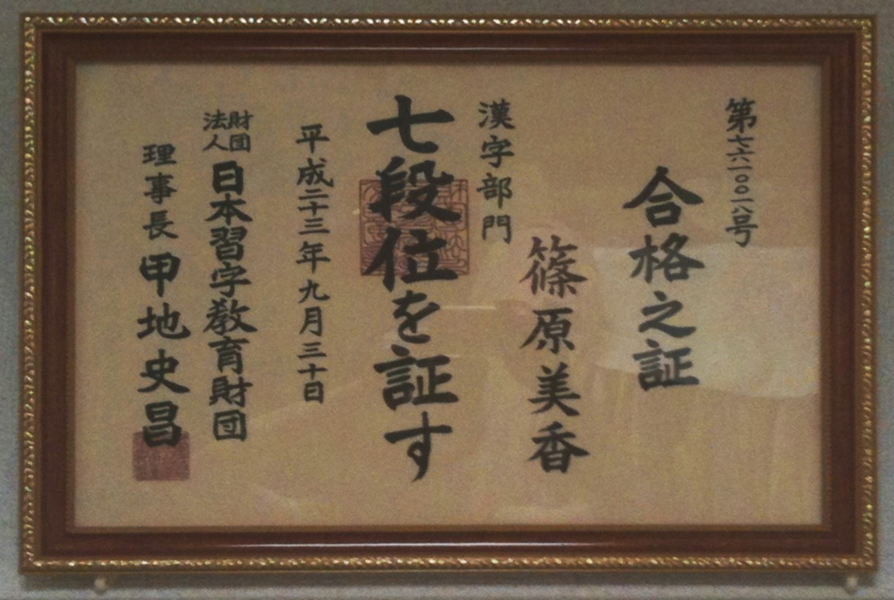 第七六一〇〇一八号
合格之証
篠原美香
漢字部門
七段位を証す
平成二十三年九月三十日
財団法人 日本習字教育財団
理事長 甲地史昌